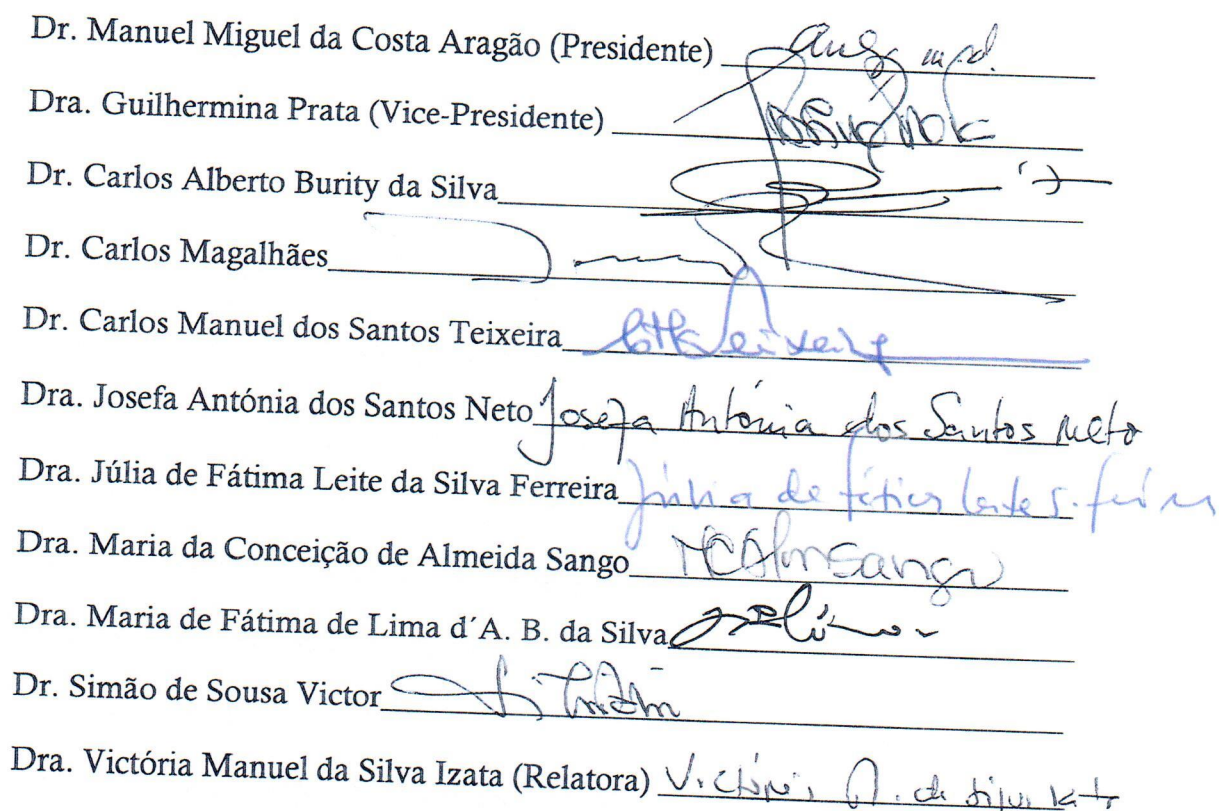 Dr. Manuel Miguel da Costa Aragão (Presidente)
Dra. Guilhermina Prata (Vice-Presidente)
Dr. Carlos Alberto Burity da Silva
Dr. Carlos Magalhães
Dr. Carlos Manuel dos Santos Teixeira
Dra. Josefa Antónia dos Santos Neto Josefa Antónia dos Santos Neto
Dra. Júlia de Fátima Leite da Silva Ferreira Júlia de Fátima Leite S. Ferreira
Dra. Maria da Conceição de Almeida Sango
Dra. Maria de Fátima de Lima d´A. B. da Silva
Dr. Simão de Sousa Victor
Dra. Victória Manuel da Silva Izata (Relatora)